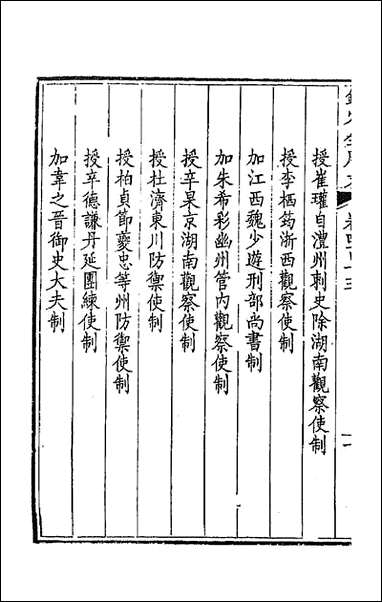 欽定全唐文 卷四百十三 一
授崔瓘自澧州刺史除湖南觀察使制
授李栖筠浙西觀察使制
加江西魏少遊刑部尚書制
加朱希彩幽州管內觀察使制
授辛杲京湖南觀察使制
授杜濟東川防禦使制
授柏貞節夔忠等州防禦使制
授辛德謙丹延團練使制
加韋之晉御史大夫制